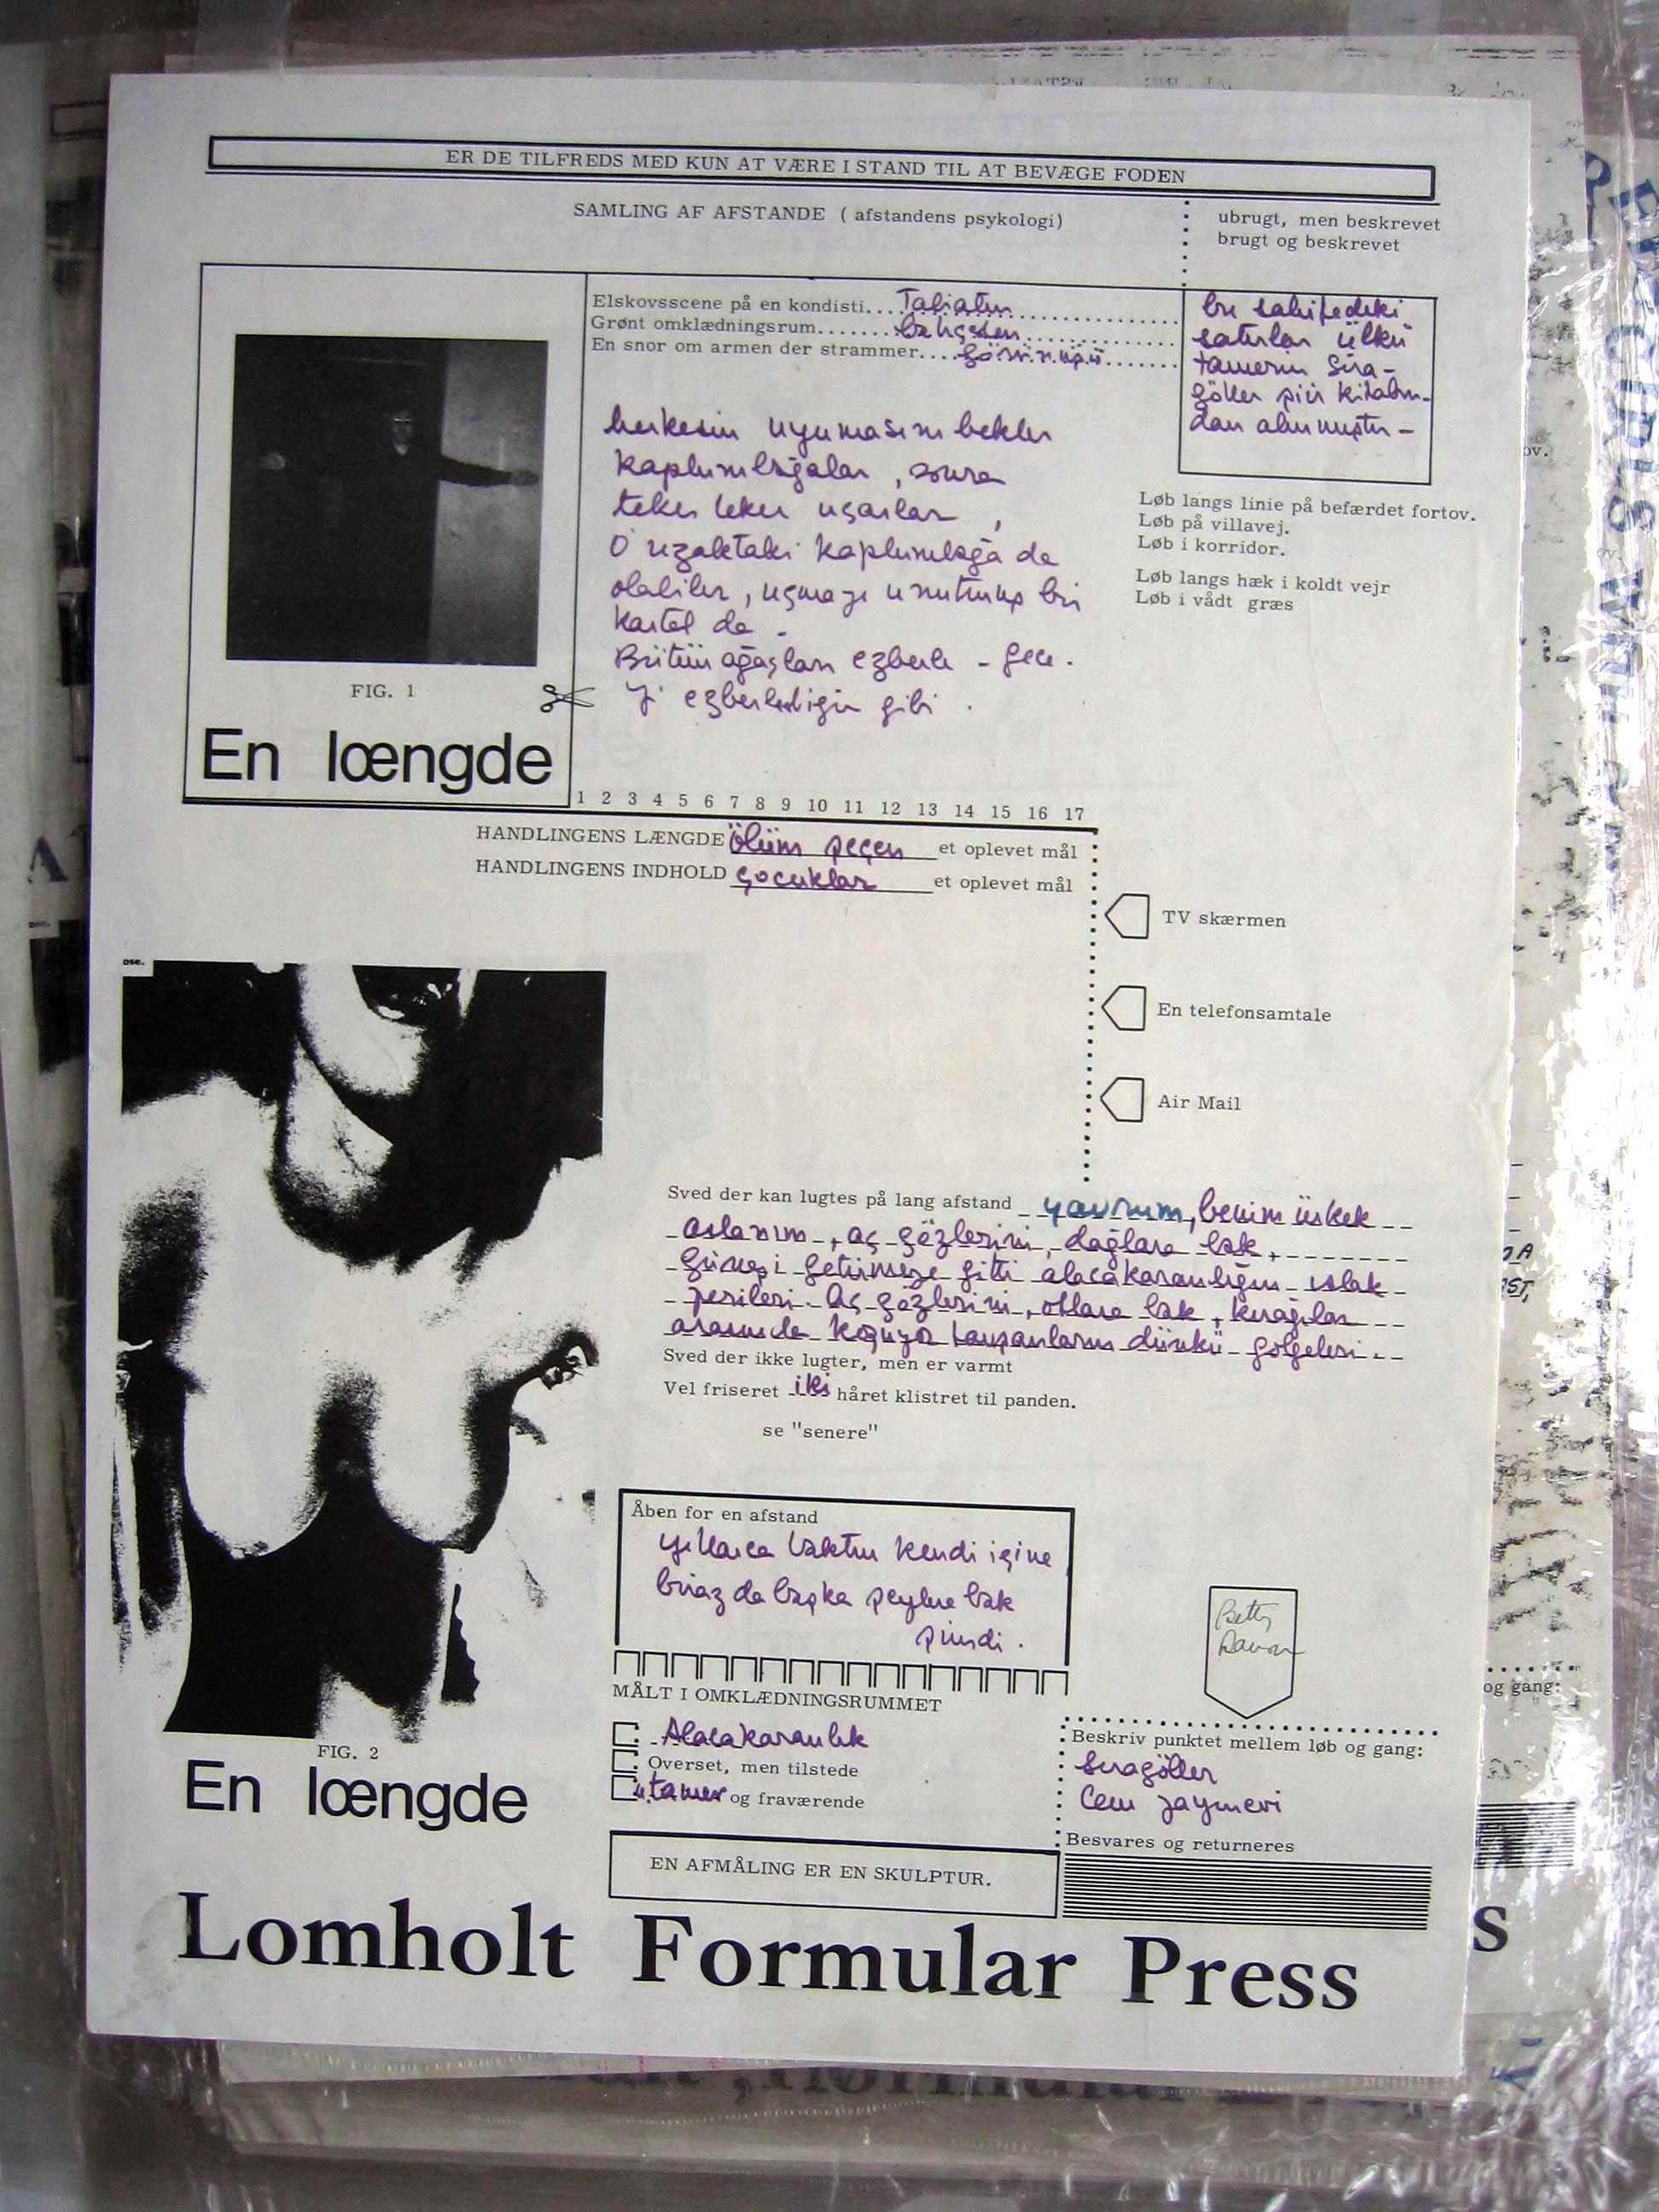 ER DE TILFREDS MED KUN AT VÆRE I STAND TIL AT BEVÆGE FODEN
SAMLING AF AFSTANDE ( afstandens psykologi)
ubrugt, men beskrevet
brugt og beskrevet
Elskovsscene på en kondisti.... Tabiatın
Grønt omklædningsrum....... bahçeden
En snor om armen der strammer.... görünüşü
bu sahifedeki
satırlar ülkü
tamerin Sıra-
göller şiir kitabın-
dan alınmıştır -
herkesin uyumasını bekler
kaplumbağalar , sonra
teker teker uçarlar ,
O uzaktaki kaplumbağa da
olabilir , uçmayı unutmuş bir
kartal da .
Bütün ağaçları ezberle - gece .
ezberlediğin gibi .
FIG. 1
En længde
1 2 3 4 5 6 7 8 9 10 11 12 13 14 15 16 17
HANDLINGENS LÆNGDE Ölüm seçen et oplevet mål
HANDLINGENS INDHOLD çocuklar et oplevet mål
Løb langs linie på befærdet fortov.
Løb på villavej.
Løb i korridor.
Løb langs hæk i koldt vejr
Løb i vådt græs
TV skærmen
En telefonsamtale
Air Mail
Sved der kan lugtes på lang afstand yavrum, benim ürkek
aslanım , aç gözlerini , dağlara bak ,
güneşi getirmeye gitti alacakaranlığın ıslak
perileri . Aç gözlerini , otlara bak , kırağılar
arasında koşuyor tavşanların dünkü gölgeleri .
Sved der ikke lugter, men er varmt
Vel friseret iki håret klistret til panden.
se "senere"
Åben for en afstand
yıllarca baktın kendi içine
biraz da başka şeylere bak
şimdi .
MÅLT I OMKLÆDNINGSRUMMET
Alacakaranlık
Overset, men tilstede
ü. tamer og fraværende
Betty
Beskriv punktet mellem løb og gang:
Sıragöller
Cem yayınevi
Besvares og returneres
FIG. 2
En længde
EN AFMÅLING ER EN SKULPTUR.
Lomholt Formular Press
og gang:
s